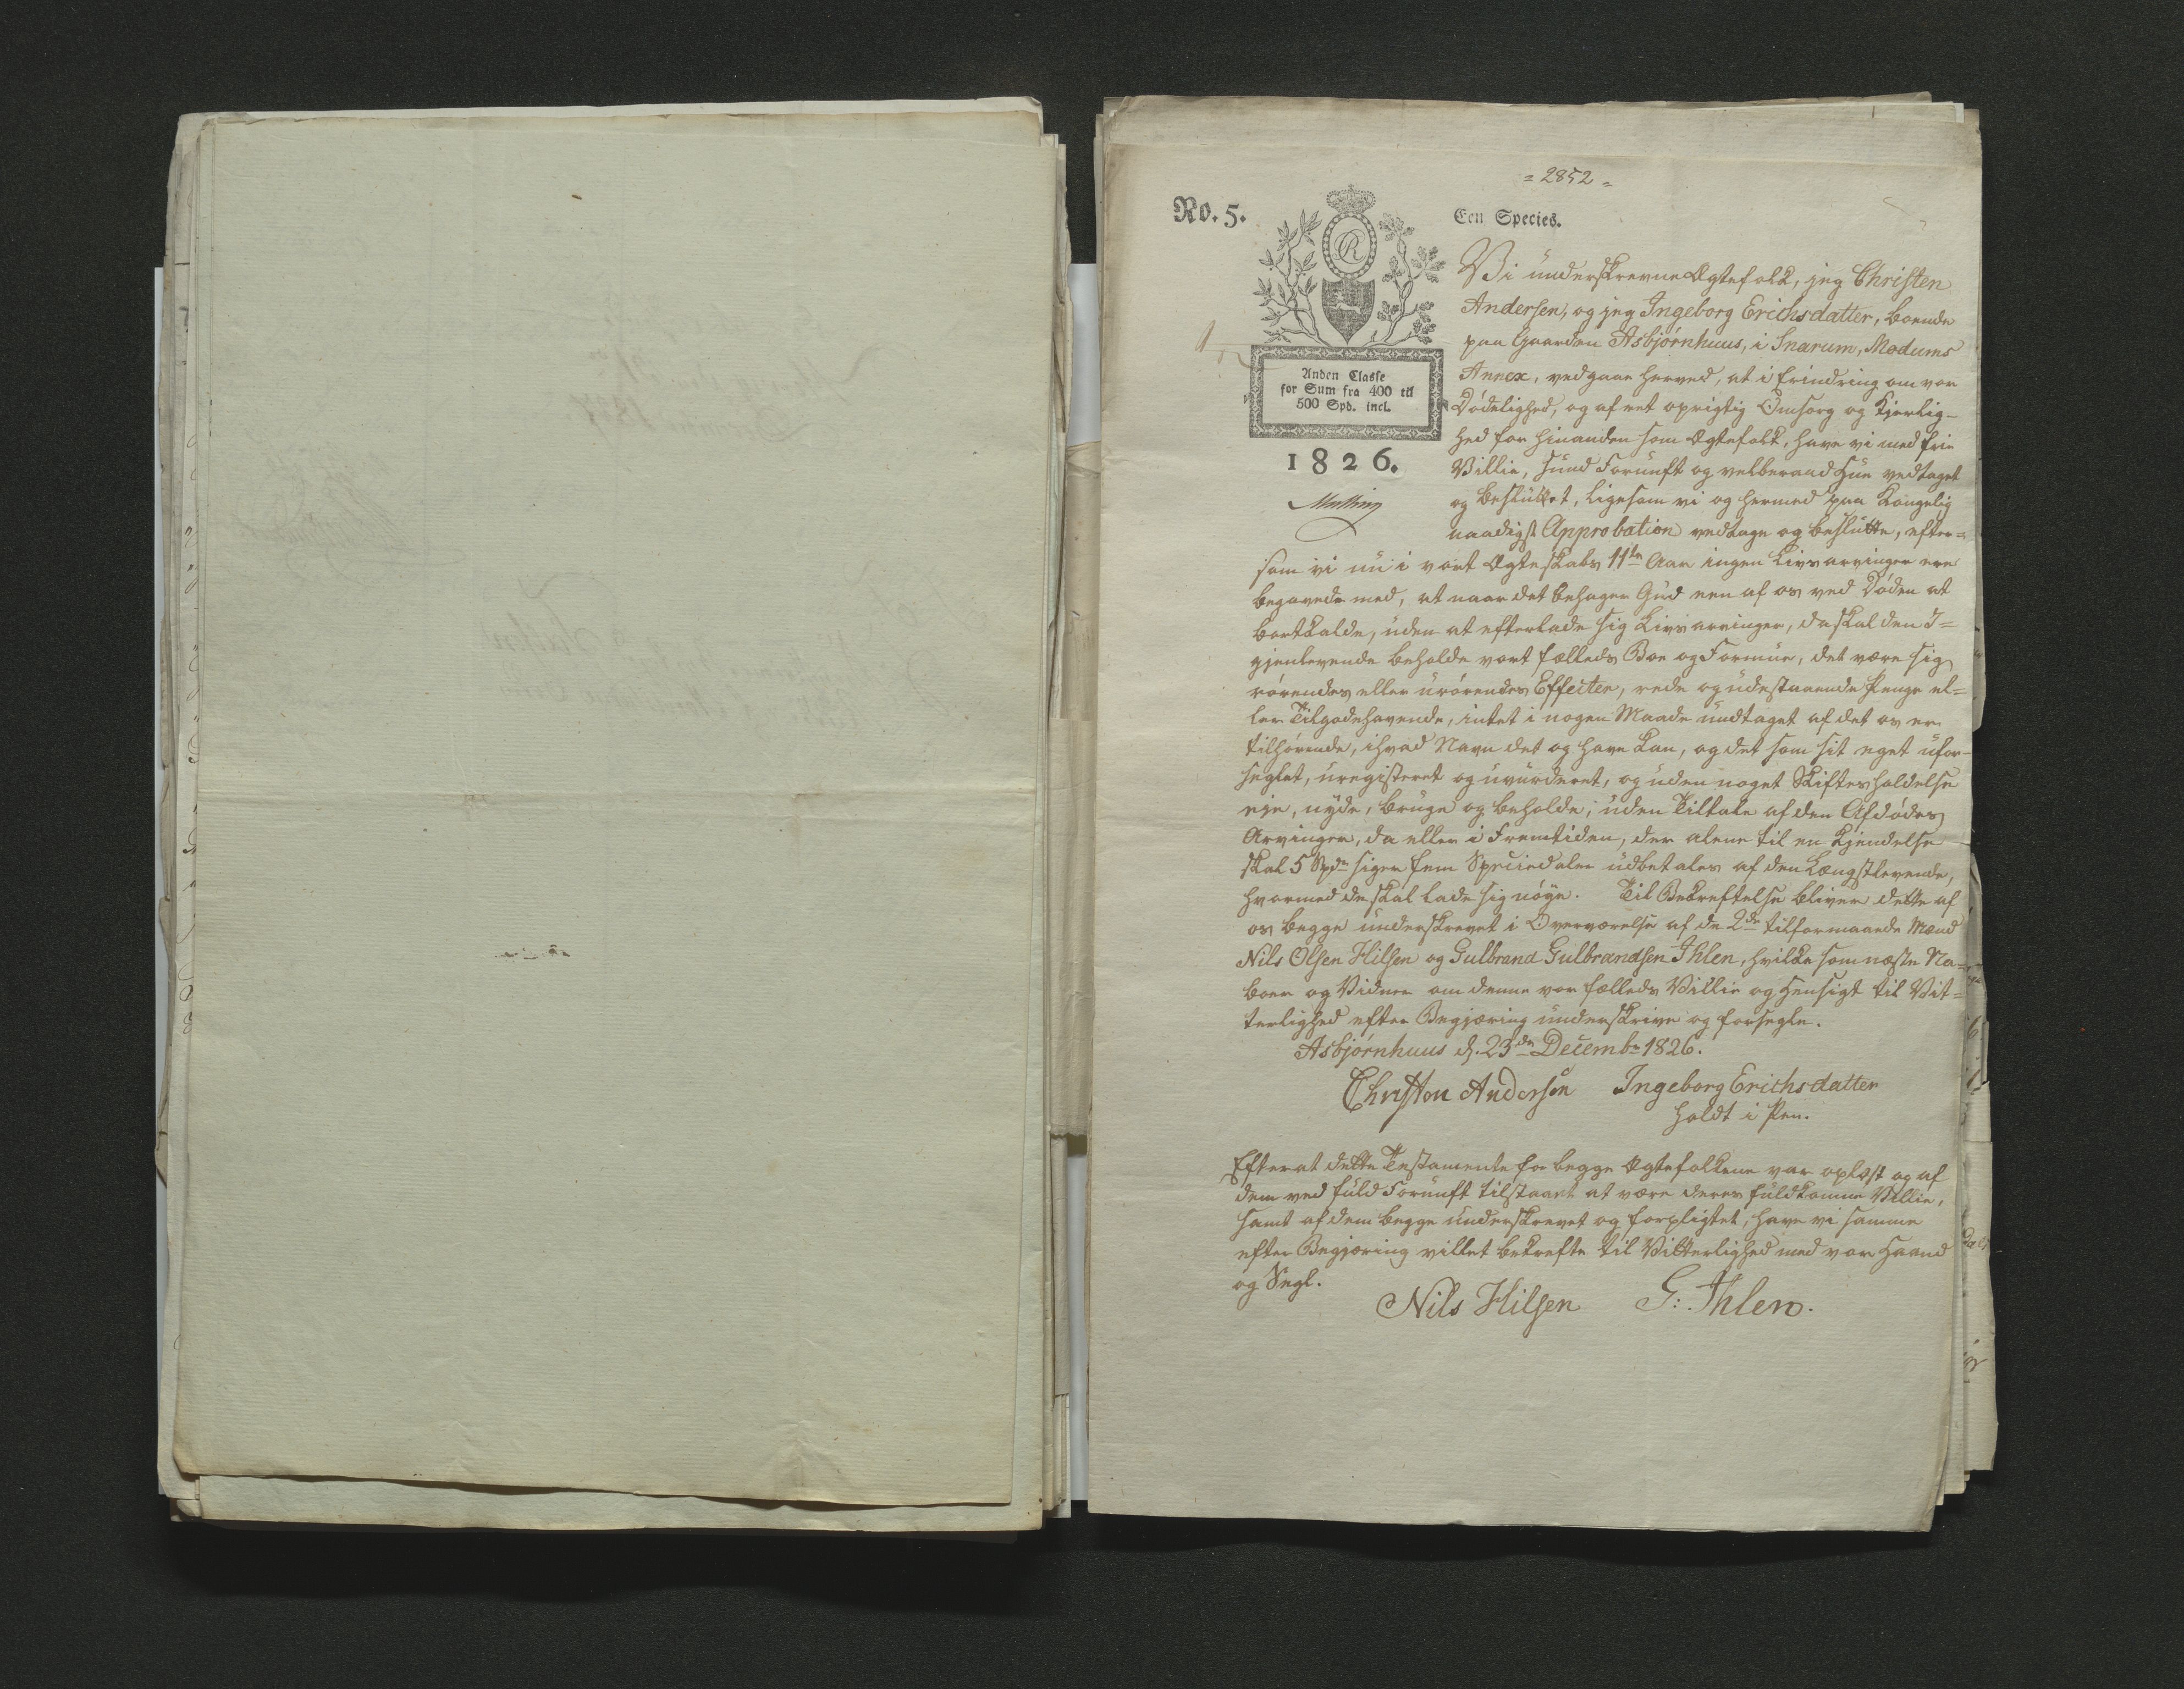 = 2852 =
No. 5.
Een Species.
Anden Classe
for Sum fra 400 til
500 Spd. incl.
1826.
Malling
Vi underskrevne Ægtefolk, jeg Christen
Andersen, og jeg Ingeborg Erichsdatter, boende
paa Gaarden Asbjørnhuus, i Snarum, Modums
Annex, vedgaae herved, at i Erindring om vor
Dødelighed, og af ret oprigtig Omsorg og Kjerlig-
hed for hinanden som Ægtefolk, have vi med frie
Villie, sund Fornuft og velberaad Hue vedtaget
og besluttet, ligesom vi og hermed paa Kongelig
naadigst Approbation vedtage og beslutte, efter=
som vi nu i vort Ægteskabs 11te Aar ingen Livsarvinger ere
begavede med, at naar det behager Gud een af os ved Døden at
bortkalde, uden at efterlade sig Livsarvinger, da skal den I=
gjenlevende beholde vort fælleds Boe og Formue, det være sig
rørendes eller urørendes Effecter, rede og udestaaende Penge el=
ler Tilgodehavende, intet i nogen Maade undtaget af det os er
tilhørende, ihvad Navn det og have kan, og det som sit eget ufor-
seglet, uregisteret og uvurderet, og uden noget Skiftes holdelse
eje, nyde, bruge og beholde, uden Tiltale af den Afdødes
Arvinger, da eller i Fremtiden, der alene til en Kjendelse
skal 5 Spdr siger fem Speciedaler udbetales af den Længstlevende,
hvormed de skal lade sig nøye. Til Bekræftelse bliver dette af
os begge underskrevet i Overværelse af de 2de tilformaaede Mænd
Nils Olsen Hilsen og Gulbrand Gulbrandsen Ihlen, hvilke som næste Na=
boer og Vidner om denne vor fælleds Villie og Hensigt til Vit=
terlighed efter Begjæring underskrive og forsegle.
Asbjørnhuus d. 23de Decembr 1826.
Christen Andersen Ingeborg Erichsdatter
holdt i Pen.
Efterat dette Testamente for begge Ægtefolkene var oplæst og af
dem ved fuld Fornuft tilstaaet at være deres fuldkomne Villie,
samt af dem begge underskrevet og forpligtet, have vi samme
efter Begjæring villet bekræfte til Vitterlighed med vor Haand
og Segl.
Nils Hilsen G: Ihlen.